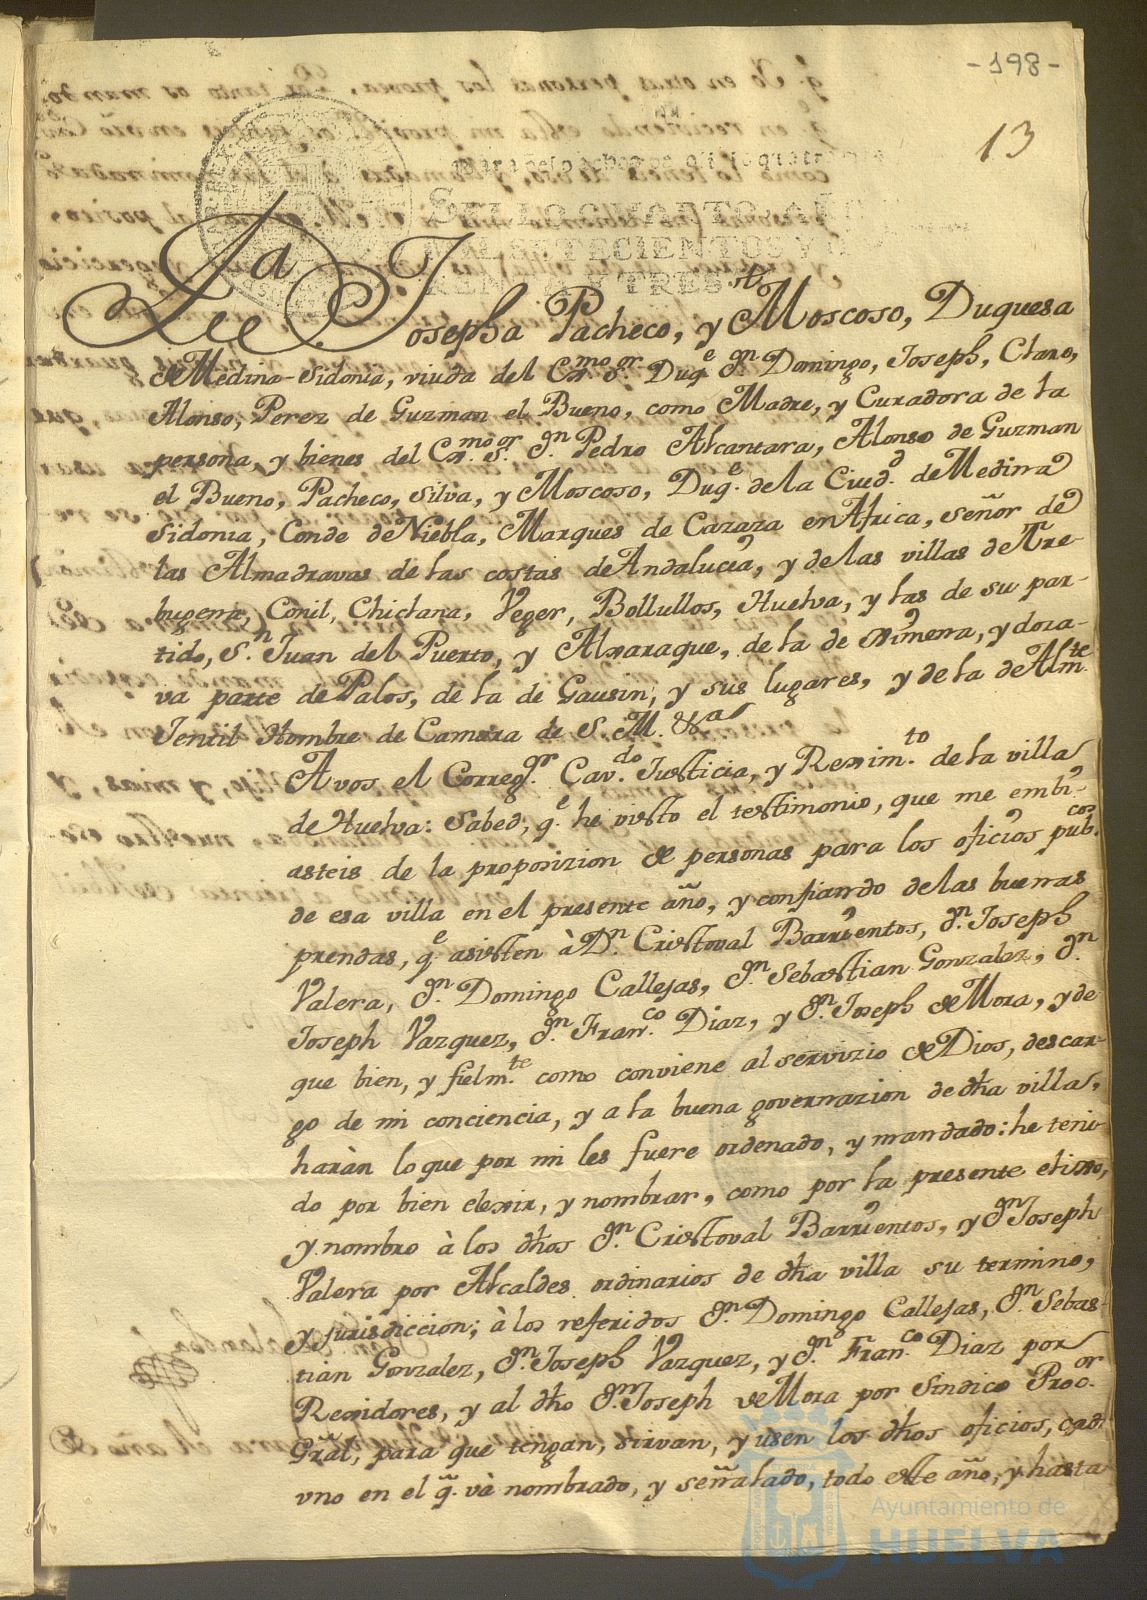 - 198 -
13
SELLO QUARTO, A
MIL SETECIENTOS Y
RENTA Y TRES.
Dª Josepha Pacheco, y Moscoso, Duquesa
de Medina-Sidonia, viuda del Exmo. Sor. Duqe. Dn. Domingo, Joseph, Claro,
Alonso, Perez de Guzman el Bueno, como Madre, y Curadora de la
persona, y bienes del Exmo. Sor. Dn. Pedro Alcantara, Alonso de Guzman
el Bueno, Pacheco, Silva, y Moscoso, Duqe. de la Ciudd. de Medina
Sidonia, Conde de Niebla, Marques de Cazaza en Africa, señor de
las Almadravas de las costas de Andalucia, y de las villas de Tre-
bugena, Conil, Chiclana, Veger, Bollullos, Huelva, y las de su par-
tido, Sn. Juan del Puerto, y Alxaraque, de la de Ximena, y doza-
va parte de Palos, de la de Gausin, y sus lugares, y de la de Almte.
Jentil Hombre de Camara de S. M. &as
A vos el Corregr. Cavdo. Justicia, y Reximto. de la villa
de Huelva: Sabed, qe. he visto el testimonio, que me embi-
asteis de la proposizion de personas para los oficios pubcos.
de esa villa en el presente año, y confiando de las buenas
prendas, qe. asisten à Dn. Cristoval Barrientos, Dn. Joseph
Valera, Dn. Domingo Callejas, Dn. Sebastian Gonzalez, Dn.
Joseph Vazquez, Dn. Franco. Diaz, y Dn. Joseph de Mora, y de
que bien, y fielmte. como conviene al servizio de Dios, descar-
go de mi conciencia, y a la buena governazion de dha villa,
haràn lo que por mi les fuere ordenado, y mandado: he teni-
do por bien elexir, y nombrar, como por la presente elixo,
y nombro à los dhos Dn. Cristoval Barrientos, y Dn. Joseph
Valera por Alcaldes ordinarios de dha villa su termino,
y jurisdiccion; à los referidos Dn. Domingo Callejas, Dn. Sebas-
tian Gonzalez, Dn. Joseph Vazquez, y Dn. Franco. Diaz por
Rexidores, y al dho Dn. Joseph de Mora por Sindico Procor.
Gral, para que tengan, sirvan, y usen los dhos oficios, cada
vno en el q. và nombrado, y señalado, todo este año, y hasta
Ayuntamiento de
HUELVA